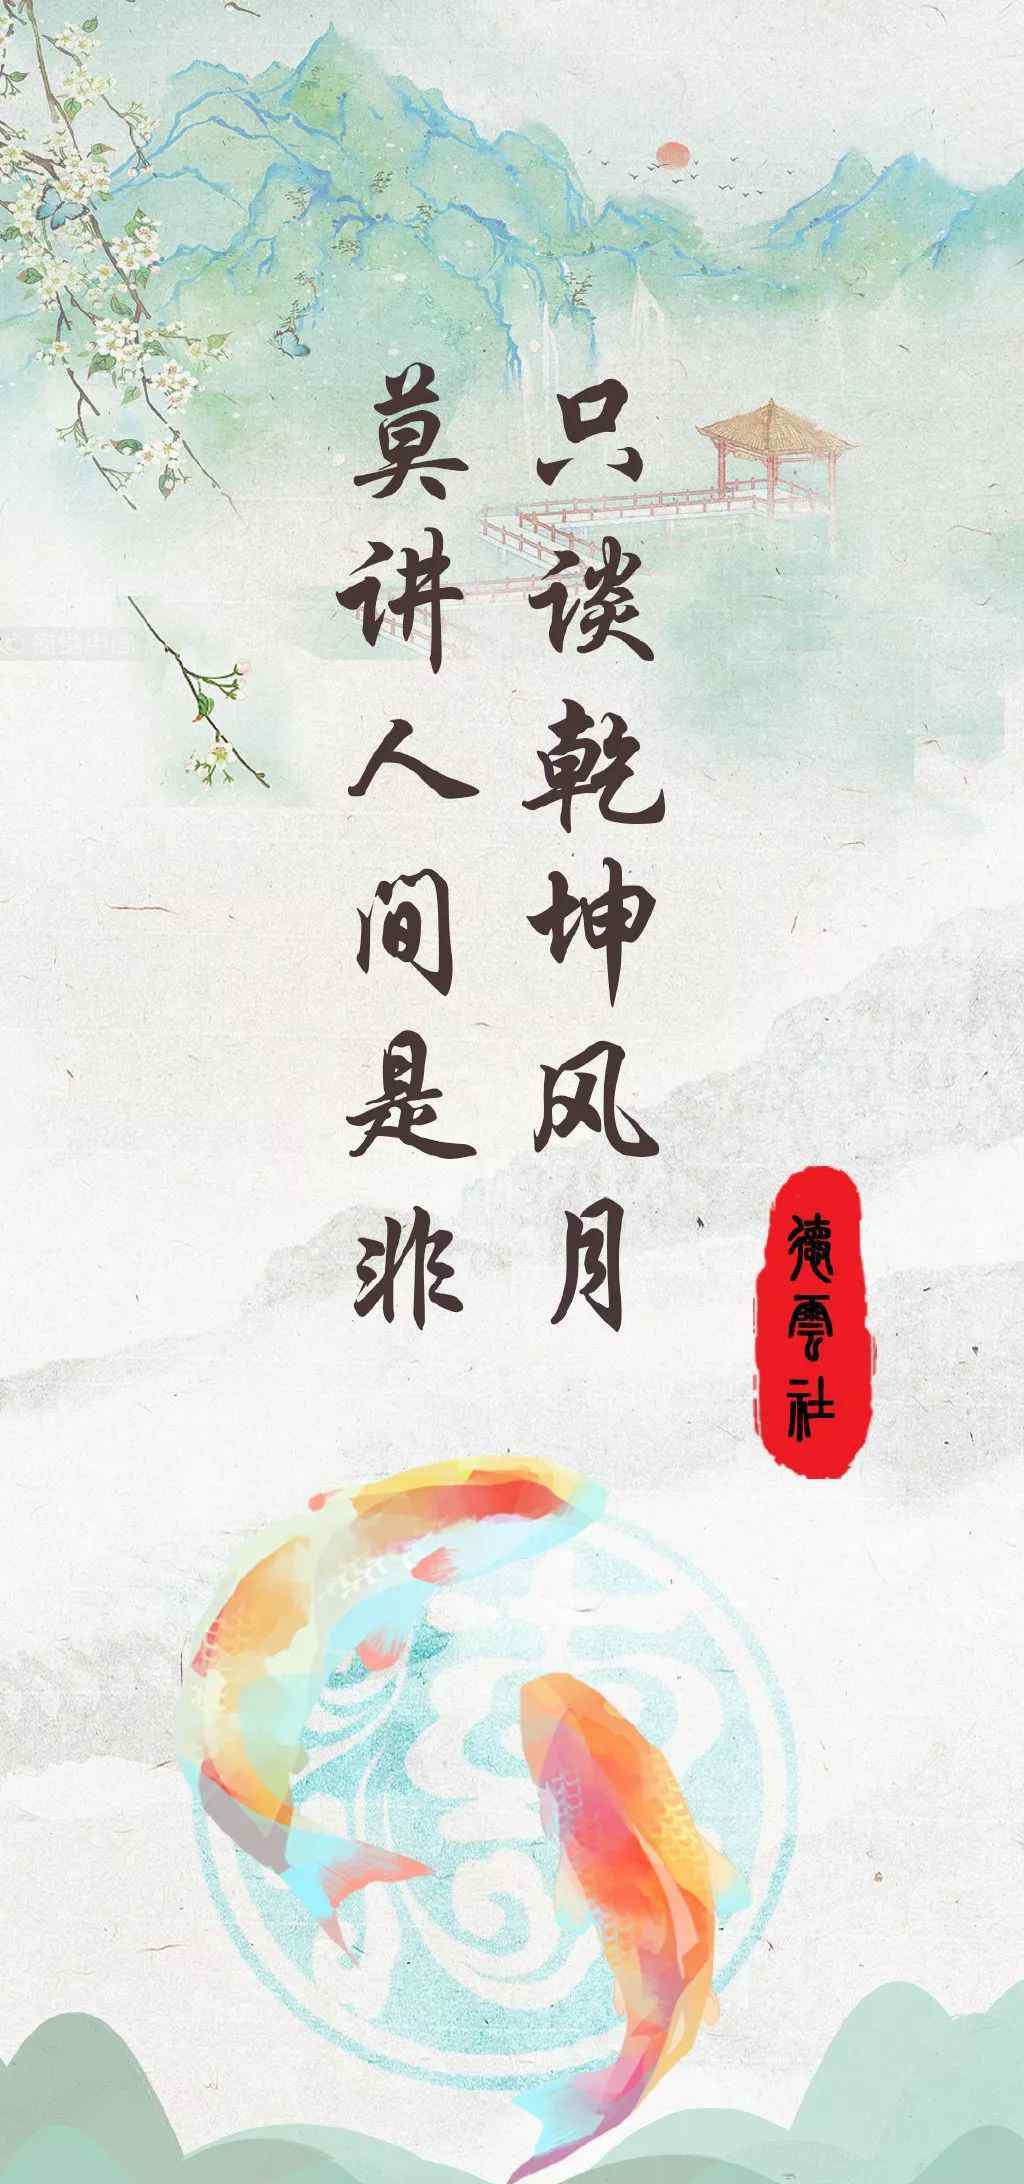 只谈乾坤风月
莫讲人间是非
德雲社